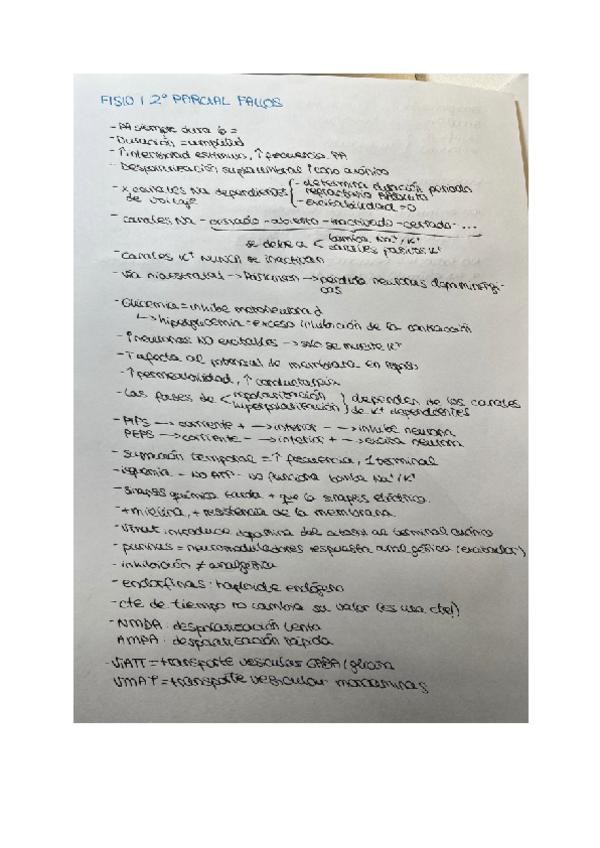 FISIO I 2º PARCIAL FALLOS
- PA siempre dura lo =
- Duración = amplitud
- ↑ intensidad estímulo, ↑ frecuencia PA
- Despolarización supraumbral ↑ cono axónico
- x canales Na dependientes de voltaje { - determina duración periodo refractario absoluto
- excitabilidad = 0
- canales Na - cerrado - abierto - inactivado - cerrado - ...
se debe a < bomba Na⁺/K⁺
canales pasivos K⁺
- canales K⁺ NUNCA se inactivan
- vía nigroestriatal → Parkinson → pérdida neuronas dopaminérgi-
cas
- Glicinemia = inhibe motoneurona α
↳ hiperglicinemia = exceso inhibición de la contracción
- ↑ neuronas NO excitables → solo se mueve K⁺
- T afecta al potencial de membrana en reposo
- ↑ permeabilidad, ↑ conductancia
- Las fases de < repolarización
hiperpolarización } dependen de los canales
de K⁺ dependientes
- PIPS → corriente + → interior - → inhibe neurona
PEPS → corriente - → interior + → excita neurona
- sumación temporal = ↑ frecuencia, 1 terminal
- isquemia - NO ATP - NO funciona bomba Na⁺/K⁺
- sinapsis química tarda + que la sinapsis eléctrica.
- + mielina, + resistencia de la membrana
- VMAT introduce dopamina del citosol al terminal axónico
- purinas = neuromoduladores respuesta analgésica (excitador)
- inhibición ≠ analgesia
- endorfinas: opioide endógeno
- cte de tiempo no cambia su valor (es una cte!)
- NMDA: despolarización lenta
AMPA: despolarización rápida
- ViATT = transporte vesicular GABA/glicina
VMAT = transporte vesicular monoaminas